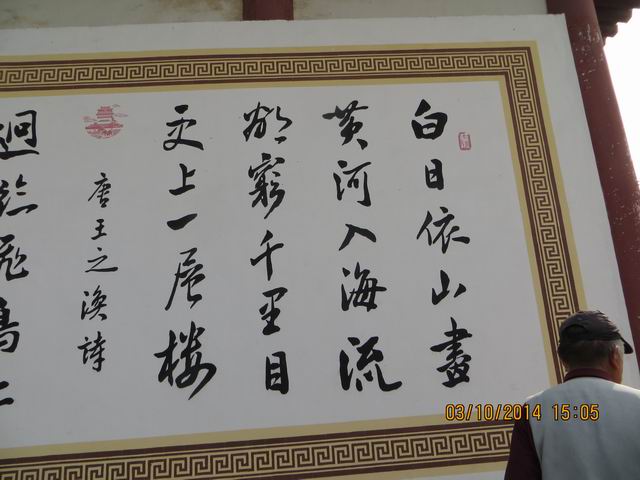 白日依山盡
黄河入海流
欲窮千里目
更上一层楼
唐王之渙詩
迥臨飛鳥上
03/10/2014 15:05